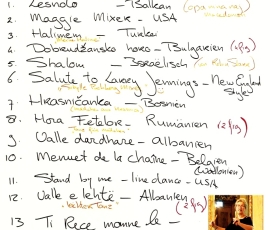 1. Lesnoto – Balkan
2. Maggie Mixer – USA
3. Halimem – Türkei
4. Dobrudžansko horo – Bulgarien (2 fig)
5. Shalom – Israelisch
6. Salute to Larry Jennings – New England Style
7. Krasničanka – Bosnien
8. Hora Fetelor – Rumänien (2 fig)
9. Valle dardhare – albanien
10. Menuet de la chaîne – Belgien (Wallonien)
11. Stand by me – line dance – USA
12. Valle e lehtë – Albanien (2 fig)
leichter Tanz
13 Ti Rece mamme le –